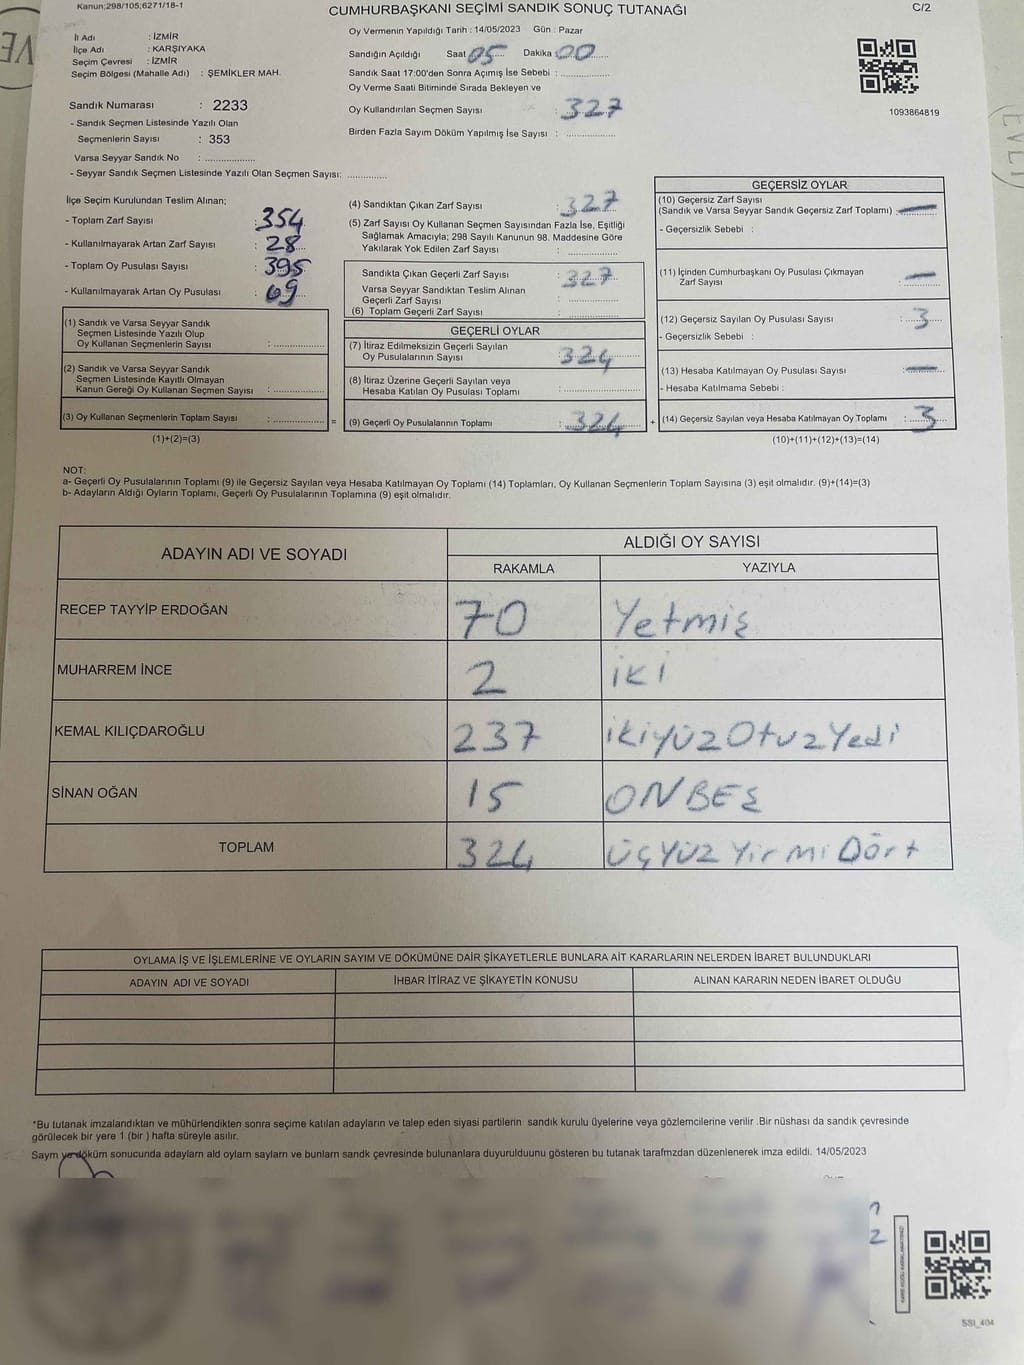 Kanun;298/105;6271/18-1
CUMHURBAŞKANI SEÇİMİ SANDIK SONUÇ TUTANAĞI
C/2
İl Adı : İZMİR
İlçe Adı : KARŞIYAKA
Seçim Çevresi : İZMİR
Seçim Bölgesi (Mahalle Adı) : ŞEMİKLER MAH.
Oy Vermenin Yapıldığı Tarih : 14/05/2023 Gün : Pazar
Sandığın Açıldığı Saat 05 Dakika 00
Sandık Saat 17:00'den Sonra Açımış İse Sebebi :
Oy Verme Saati Bitiminde Sırada Bekleyen ve
Oy Kullandırılan Seçmen Sayısı : 327
Birden Fazla Sayım Döküm Yapılmış İse Sayısı :
1093864819
Sandık Numarası : 2233
- Sandık Seçmen Listesinde Yazılı Olan
Seçmenlerin Sayısı : 353
Varsa Seyyar Sandık No :
- Seyyar Sandık Seçmen Listesinde Yazılı Olan Seçmen Sayısı:
İlçe Seçim Kurulundan Teslim Alınan;
- Toplam Zarf Sayısı : 354
- Kullanılmayarak Artan Zarf Sayısı : 28
- Toplam Oy Pusulası Sayısı : 395
- Kullanılmayarak Artan Oy Pusulası : 69
(1) Sandık ve Varsa Seyyar Sandık
Seçmen Listesinde Yazılı Olup
Oy Kullanan Seçmenlerin Sayısı :
(2) Sandık ve Varsa Seyyar Sandık
Seçmen Listesinde Kayıtlı Olmayan
Kanun Gereği Oy Kullanan Seçmen Sayısı :
(3) Oy Kullanan Seçmenlerin Toplam Sayısı :
(1)+(2)=(3)
=
(4) Sandıktan Çıkan Zarf Sayısı : 327
(5) Zarf Sayısı Oy Kullanan Seçmen Sayısından Fazla İse, Eşitliği
Sağlamak Amacıyla; 298 Sayılı Kanunun 98. Maddesine Göre
Yakılarak Yok Edilen Zarf Sayısı :
Sandıkta Çıkan Geçerli Zarf Sayısı : 327
Varsa Seyyar Sandıktan Teslim Alınan
Geçerli Zarf Sayısı :
(6) Toplam Geçerli Zarf Sayısı :
GEÇERLİ OYLAR
(7) İtiraz Edilmeksizin Geçerli Sayılan
Oy Pusulalarının Sayısı : 324
(8) İtiraz Üzerine Geçerli Sayılan veya
Hesaba Katılan Oy Pusulası Toplamı :
(9) Geçerli Oy Pusulalarının Toplamı : 324
+
GEÇERSİZ OYLAR
(10) Geçersiz Zarf Sayısı
(Sandık ve Varsa Seyyar Sandık Geçersiz Zarf Toplamı) : —
- Geçersizlik Sebebi :
(11) İçinden Cumhurbaşkanı Oy Pusulası Çıkmayan
Zarf Sayısı : —
(12) Geçersiz Sayılan Oy Pusulası Sayısı : 3
- Geçersizlik Sebebi :
(13) Hesaba Katılmayan Oy Pusulası Sayısı : —
- Hesaba Katılmama Sebebi :
(14) Geçersiz Sayılan veya Hesaba Katılmayan Oy Toplamı : 3
(10)+(11)+(12)+(13)=(14)
NOT:
a- Geçerli Oy Pusulalarının Toplamı (9) ile Geçersiz Sayılan veya Hesaba Katılmayan Oy Toplamı (14) Toplamları, Oy Kullanan Seçmenlerin Toplam Sayısına (3) eşit olmalıdır. (9)+(14)=(3)
b- Adayların Aldığı Oyların Toplamı, Geçerli Oy Pusulalarının Toplamına (9) eşit olmalıdır.
ADAYIN ADI VE SOYADI
ALDIĞI OY SAYISI
RAKAMLA YAZIYLA
RECEP TAYYİP ERDOĞAN 70 Yetmiş
MUHARREM İNCE 2 iki
KEMAL KILIÇDAROĞLU 237 ikiyüzOtuzYedi
SİNAN OĞAN 15 ONBEŞ
TOPLAM 324 ÜçYüz Yirmi Dört
OYLAMA İŞ VE İŞLEMLERİNE VE OYLARIN SAYIM VE DÖKÜMÜNE DAİR ŞİKAYETLERLE BUNLARA AİT KARARLARIN NELERDEN İBARET BULUNDUKLARI
ADAYIN ADI VE SOYADI İHBAR İTİRAZ VE ŞİKAYETİN KONUSU ALINAN KARARIN NEDEN İBARET OLDUĞU
*Bu tutanak imzalandıktan ve mühürlendikten sonra seçime katılan adayların ve talep eden siyasi partilerin sandık kurulu üyelerine veya gözlemcilerine verilir .Bir nüshası da sandık çevresinde
görülecek bir yere 1 (bir ) hafta süreyle asılır.
Sayım ve döküm sonucunda adayların ald oyların sayları ve bunların sandk çevresinde bulunanlara duyurulduunu gösteren bu tutanak tarafmzdan düzenlenerek imza edildi. 14/05/2023
SSI_404